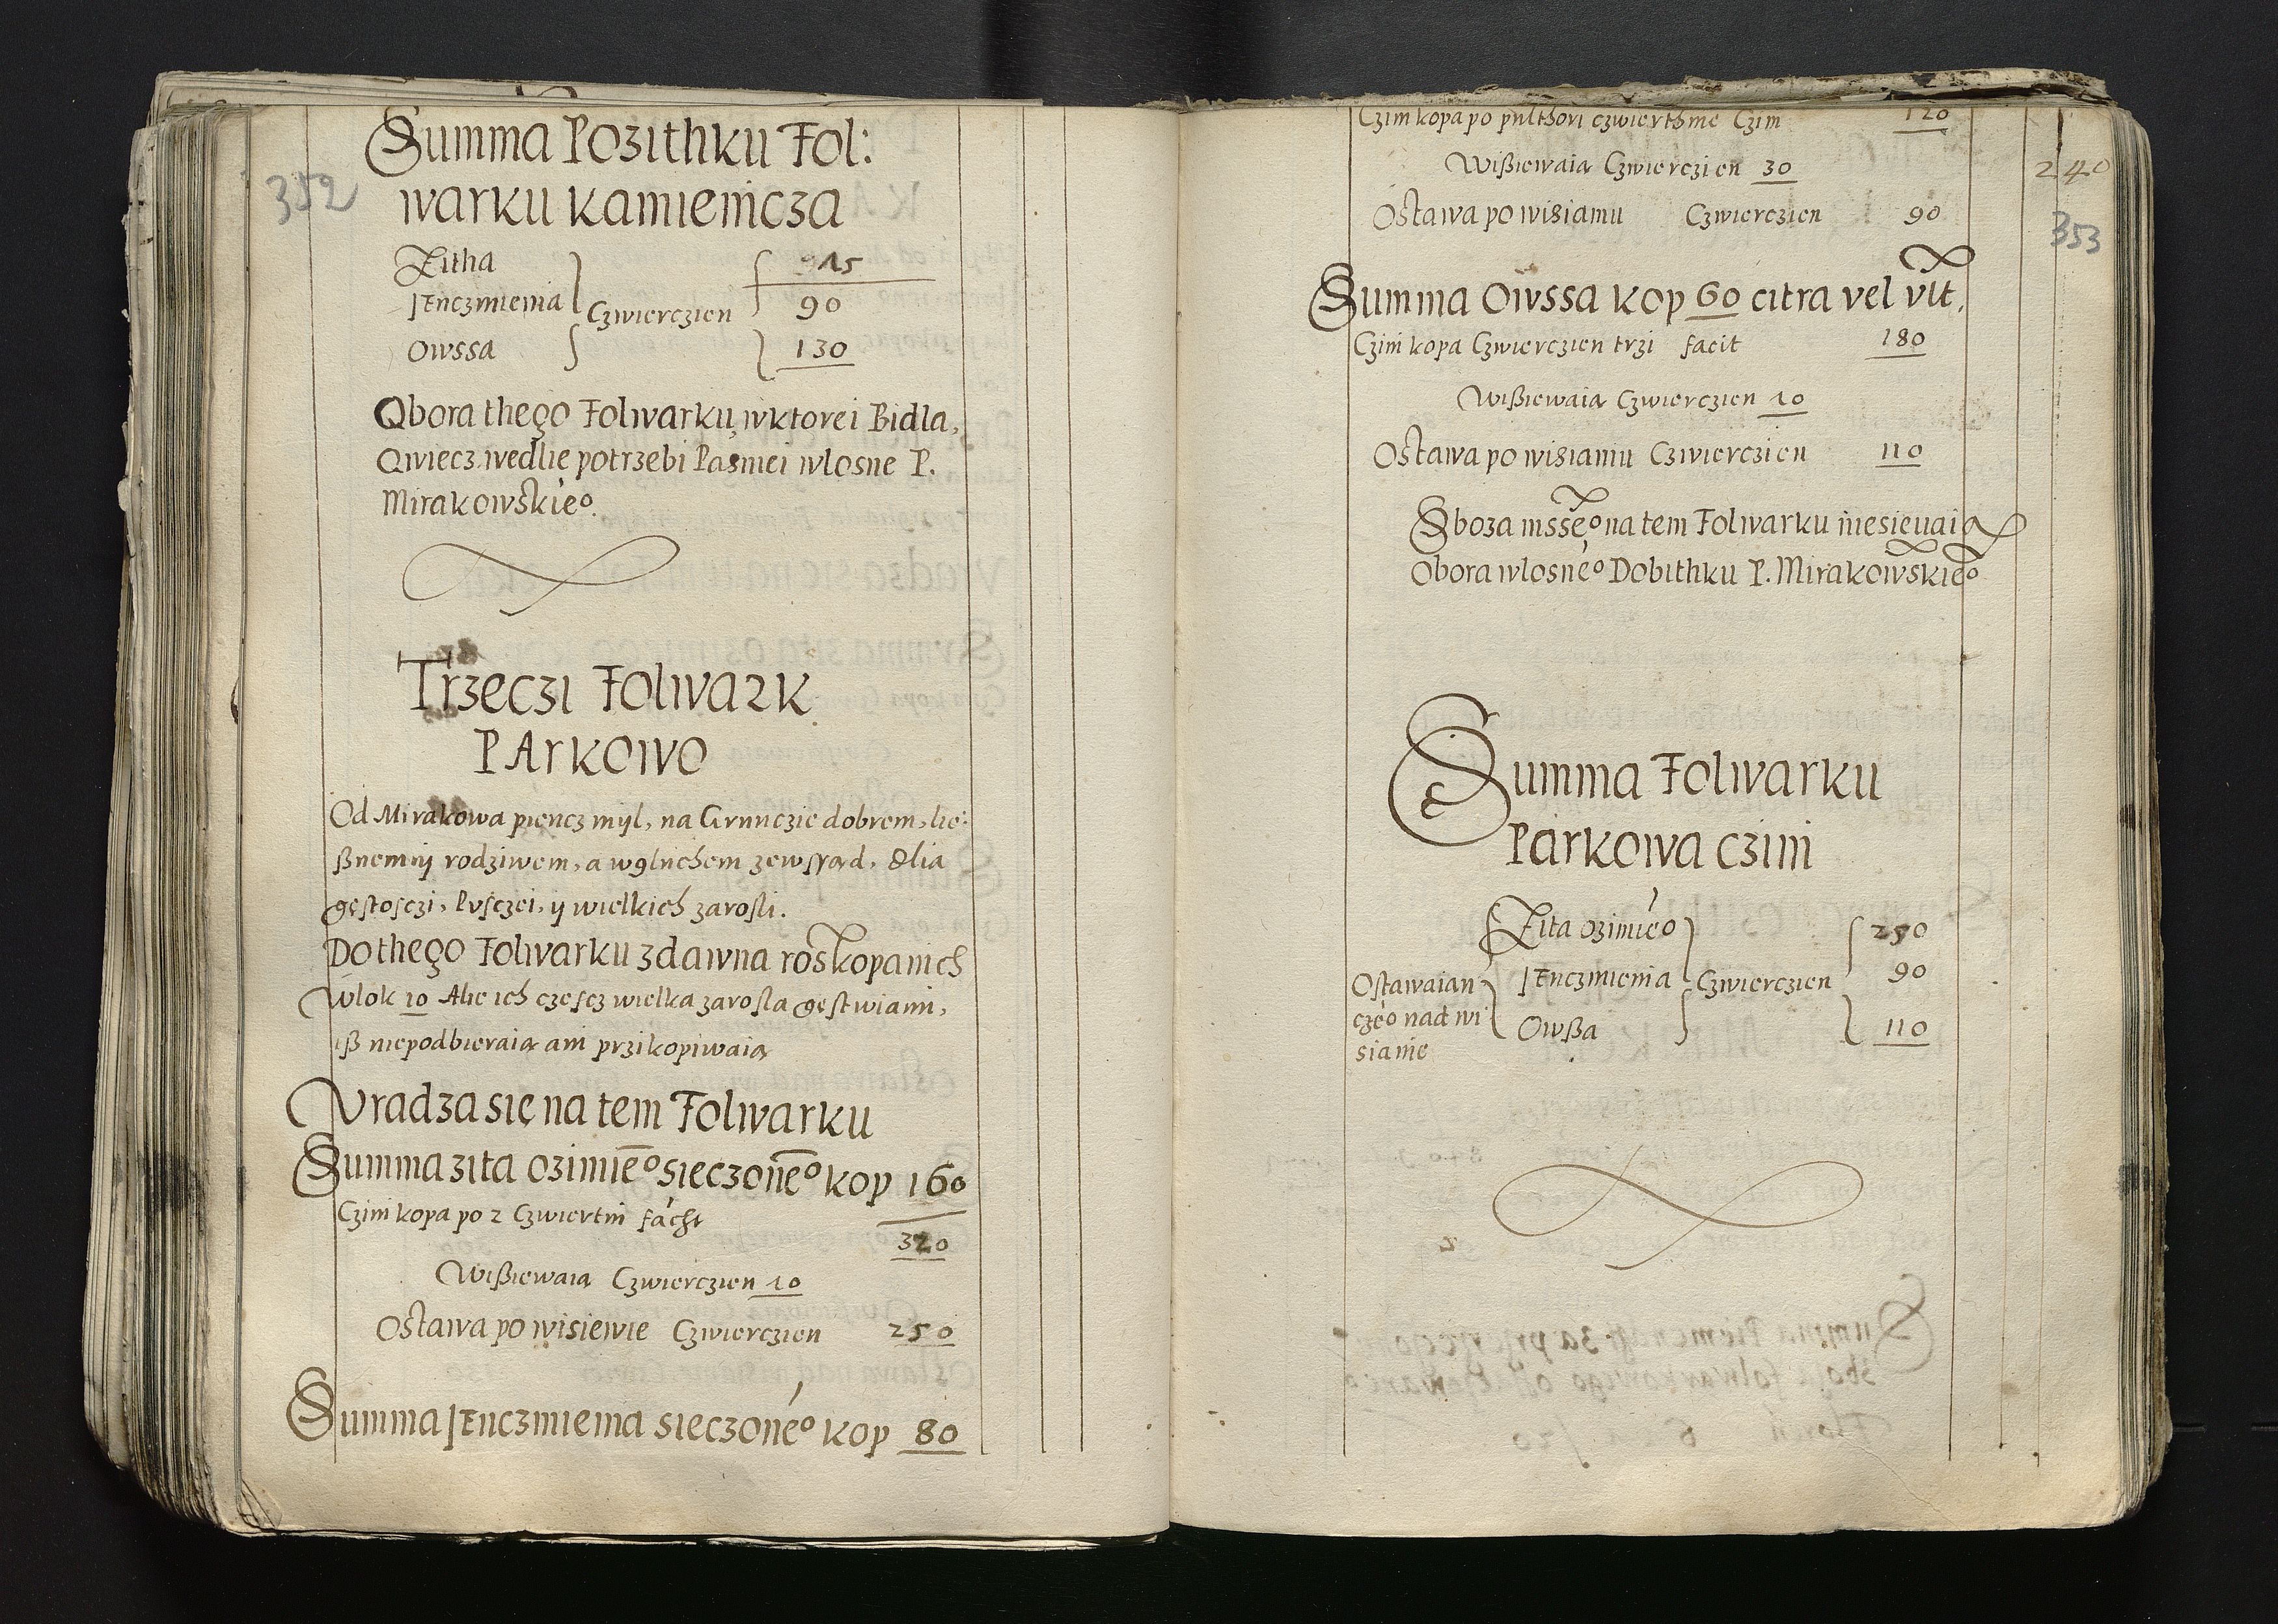 352
Summa Pozithku Fol:
warku Kamieńcza
Zitha 915
Jęnczmienia Czwierczien 90
Owssa 130
Obora thego Folwarku, wktorei Bidla,
Owiecz wedlie potrzebi Pasniei wlosne P.
Mirakowskieo.
Trzeczi Folwark
PArkowo
Od Mirakowa piencz mijl, na Grunczie dobrem, lie:
ßnem ij rodziwem, a wgluchem zewsząd, dlia
gęstosczi, Pusczei, ij wielkich zarosli.
Do thego Folwarku zdawna roskopanich
Wlok 10 Alie ich częscz wielka zarosla gęstwiami,
iß niepodbieraią ani przikopiwaią
Vradza się na tem Folwarku
Summa zita ozimieo sieczoneo kop 160
Czini kopa po 2 Czwiertni facit
320
Wißiewaią Czwierczien 10
Ostawa po wisiewie Czwierczien 250
Summa Jęnczmienia sieczoneo kop 80
Czini kopa po pulthori czwierthnie Czini 120
Wißiewaią Czwierczien 30
240
Ostawa po wisianiu Czwierczien 90
353
Summa Owssa kop 60 citra vel vlt.
Czini kopa Czwierczien trzi facit 180
Wißiewaią Czwierczien 10
Ostawa po wisianiu Czwierczien 110
Sboza insseo na tem Folwarku niesieuaią
Obora wlosneo Dobithku P. Mirakowskieo
Summa Folwarku
Parkowa czini
Zita ozimieo 250
Ostawaian Jęnczmienia Czwierczien 90
czeo nad wi Owßa 110
sianie